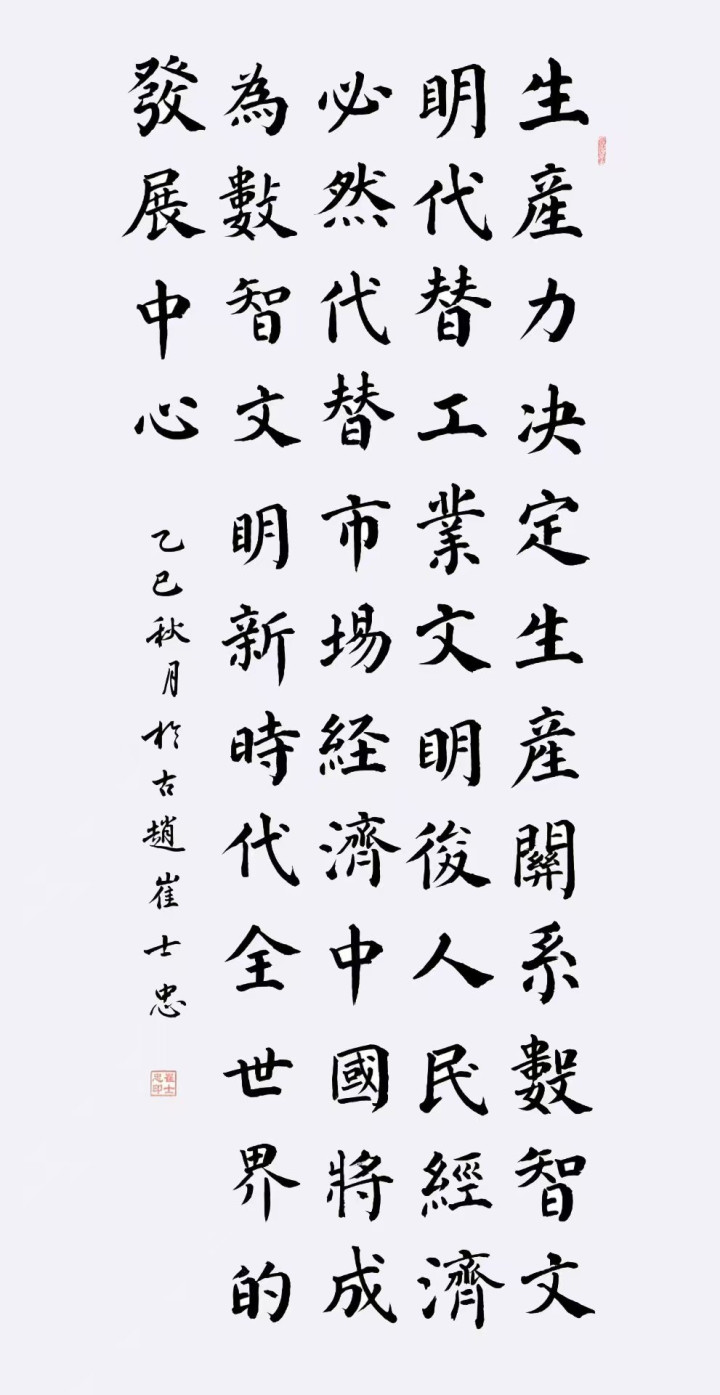 生產力決定生產關系數智文
明代替工業文明後人民經濟
必然代替市場経濟中國將成
為數智文明新時代全世界的
發展中心
乙巳秋月於古趙崔士忠
崔士忠印